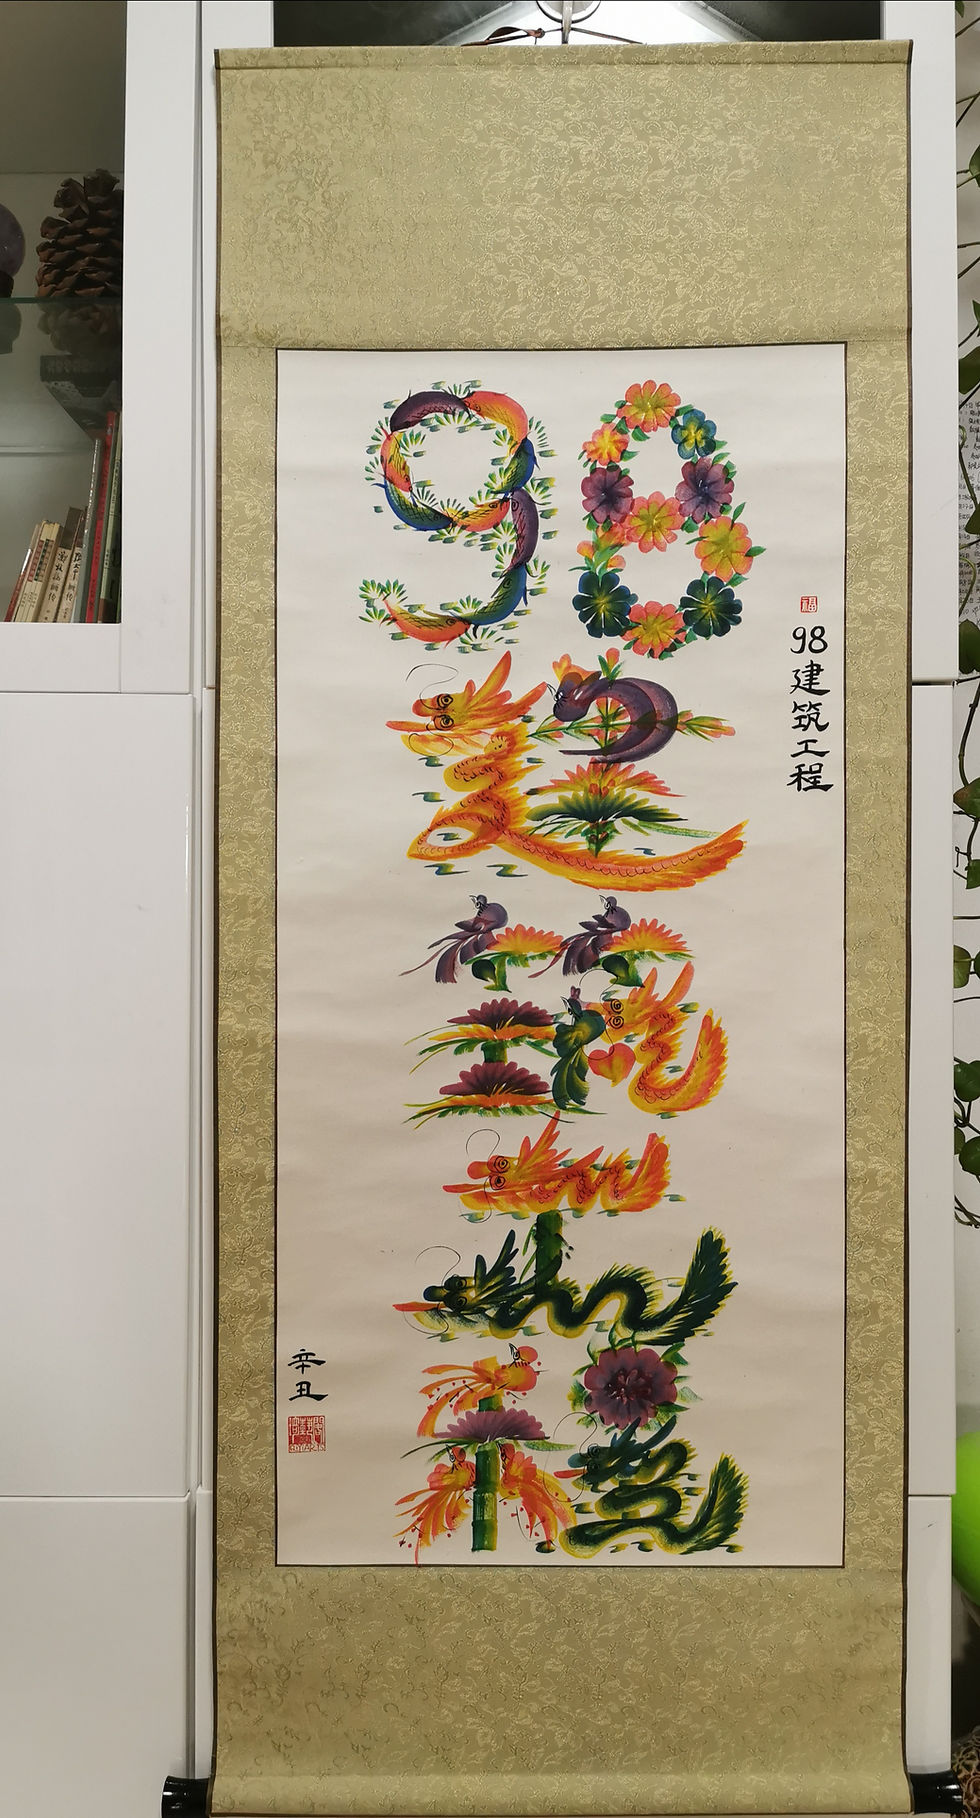 98
建
筑
工
程
福
98建筑工程
辛丑